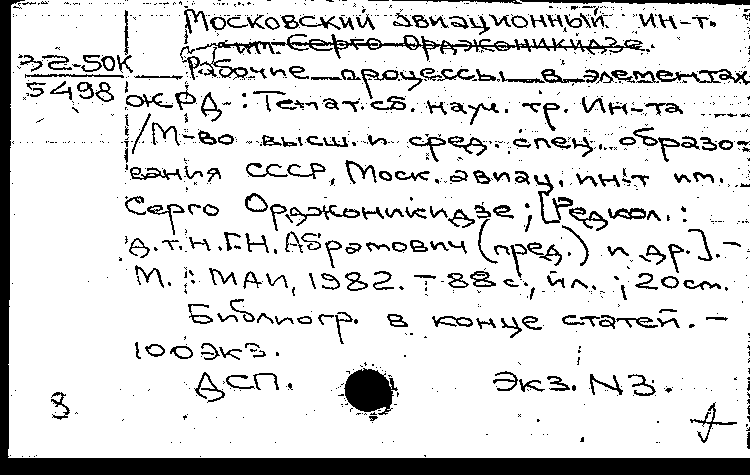 Московский авиационный ин-т.
им. Серго Орджоникидзе.
32-50К
5498
Рабочие процессы в элементах
ЖРД : Темат. сб. науч. тр. Ин-та
/М-во высш. и сред. спец. образо-
вания СССР, Моск. авиац. ин-т им.
Серго Орджоникидзе; [Редкол.:
д.т.н. Г.Н. Абрамович (пред.) и др.]. –
М. : МАИ, 1982. – 88 с., ил. ; 20 см.
Библиогр. в конце статей. –
100 экз.
ДСП.
Экз. N3.
8